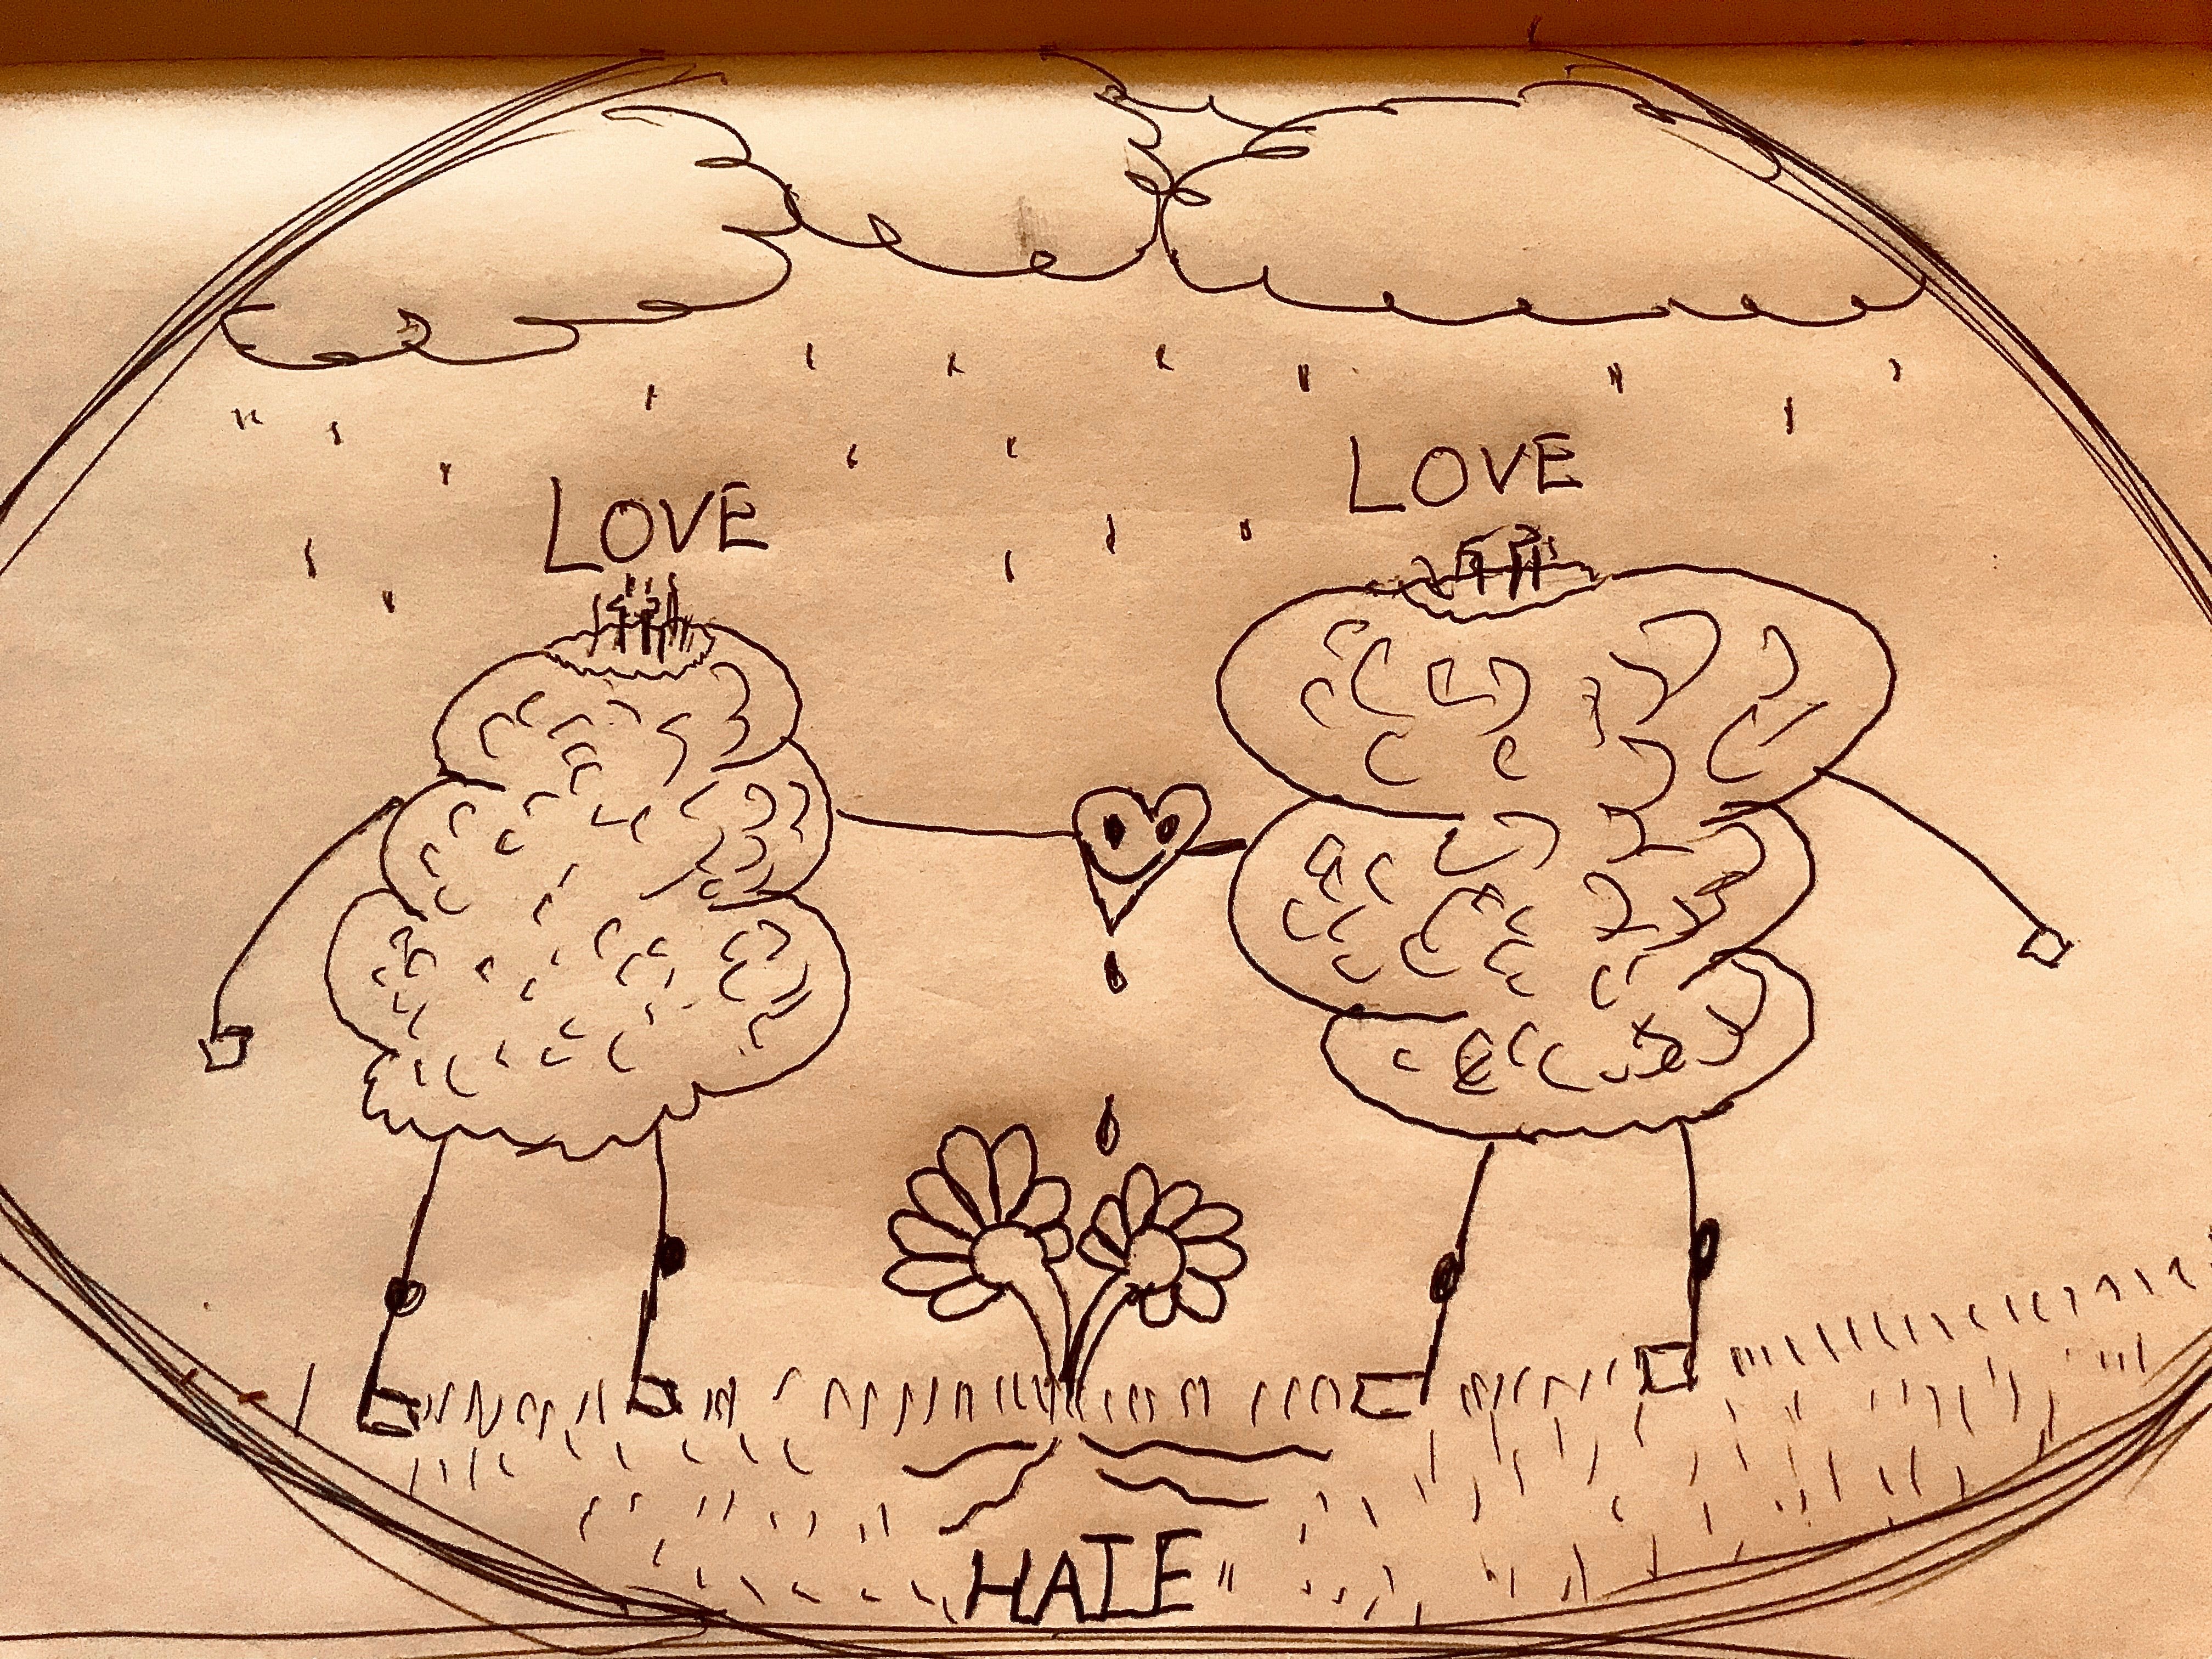 LOVE
LOVE
HATE